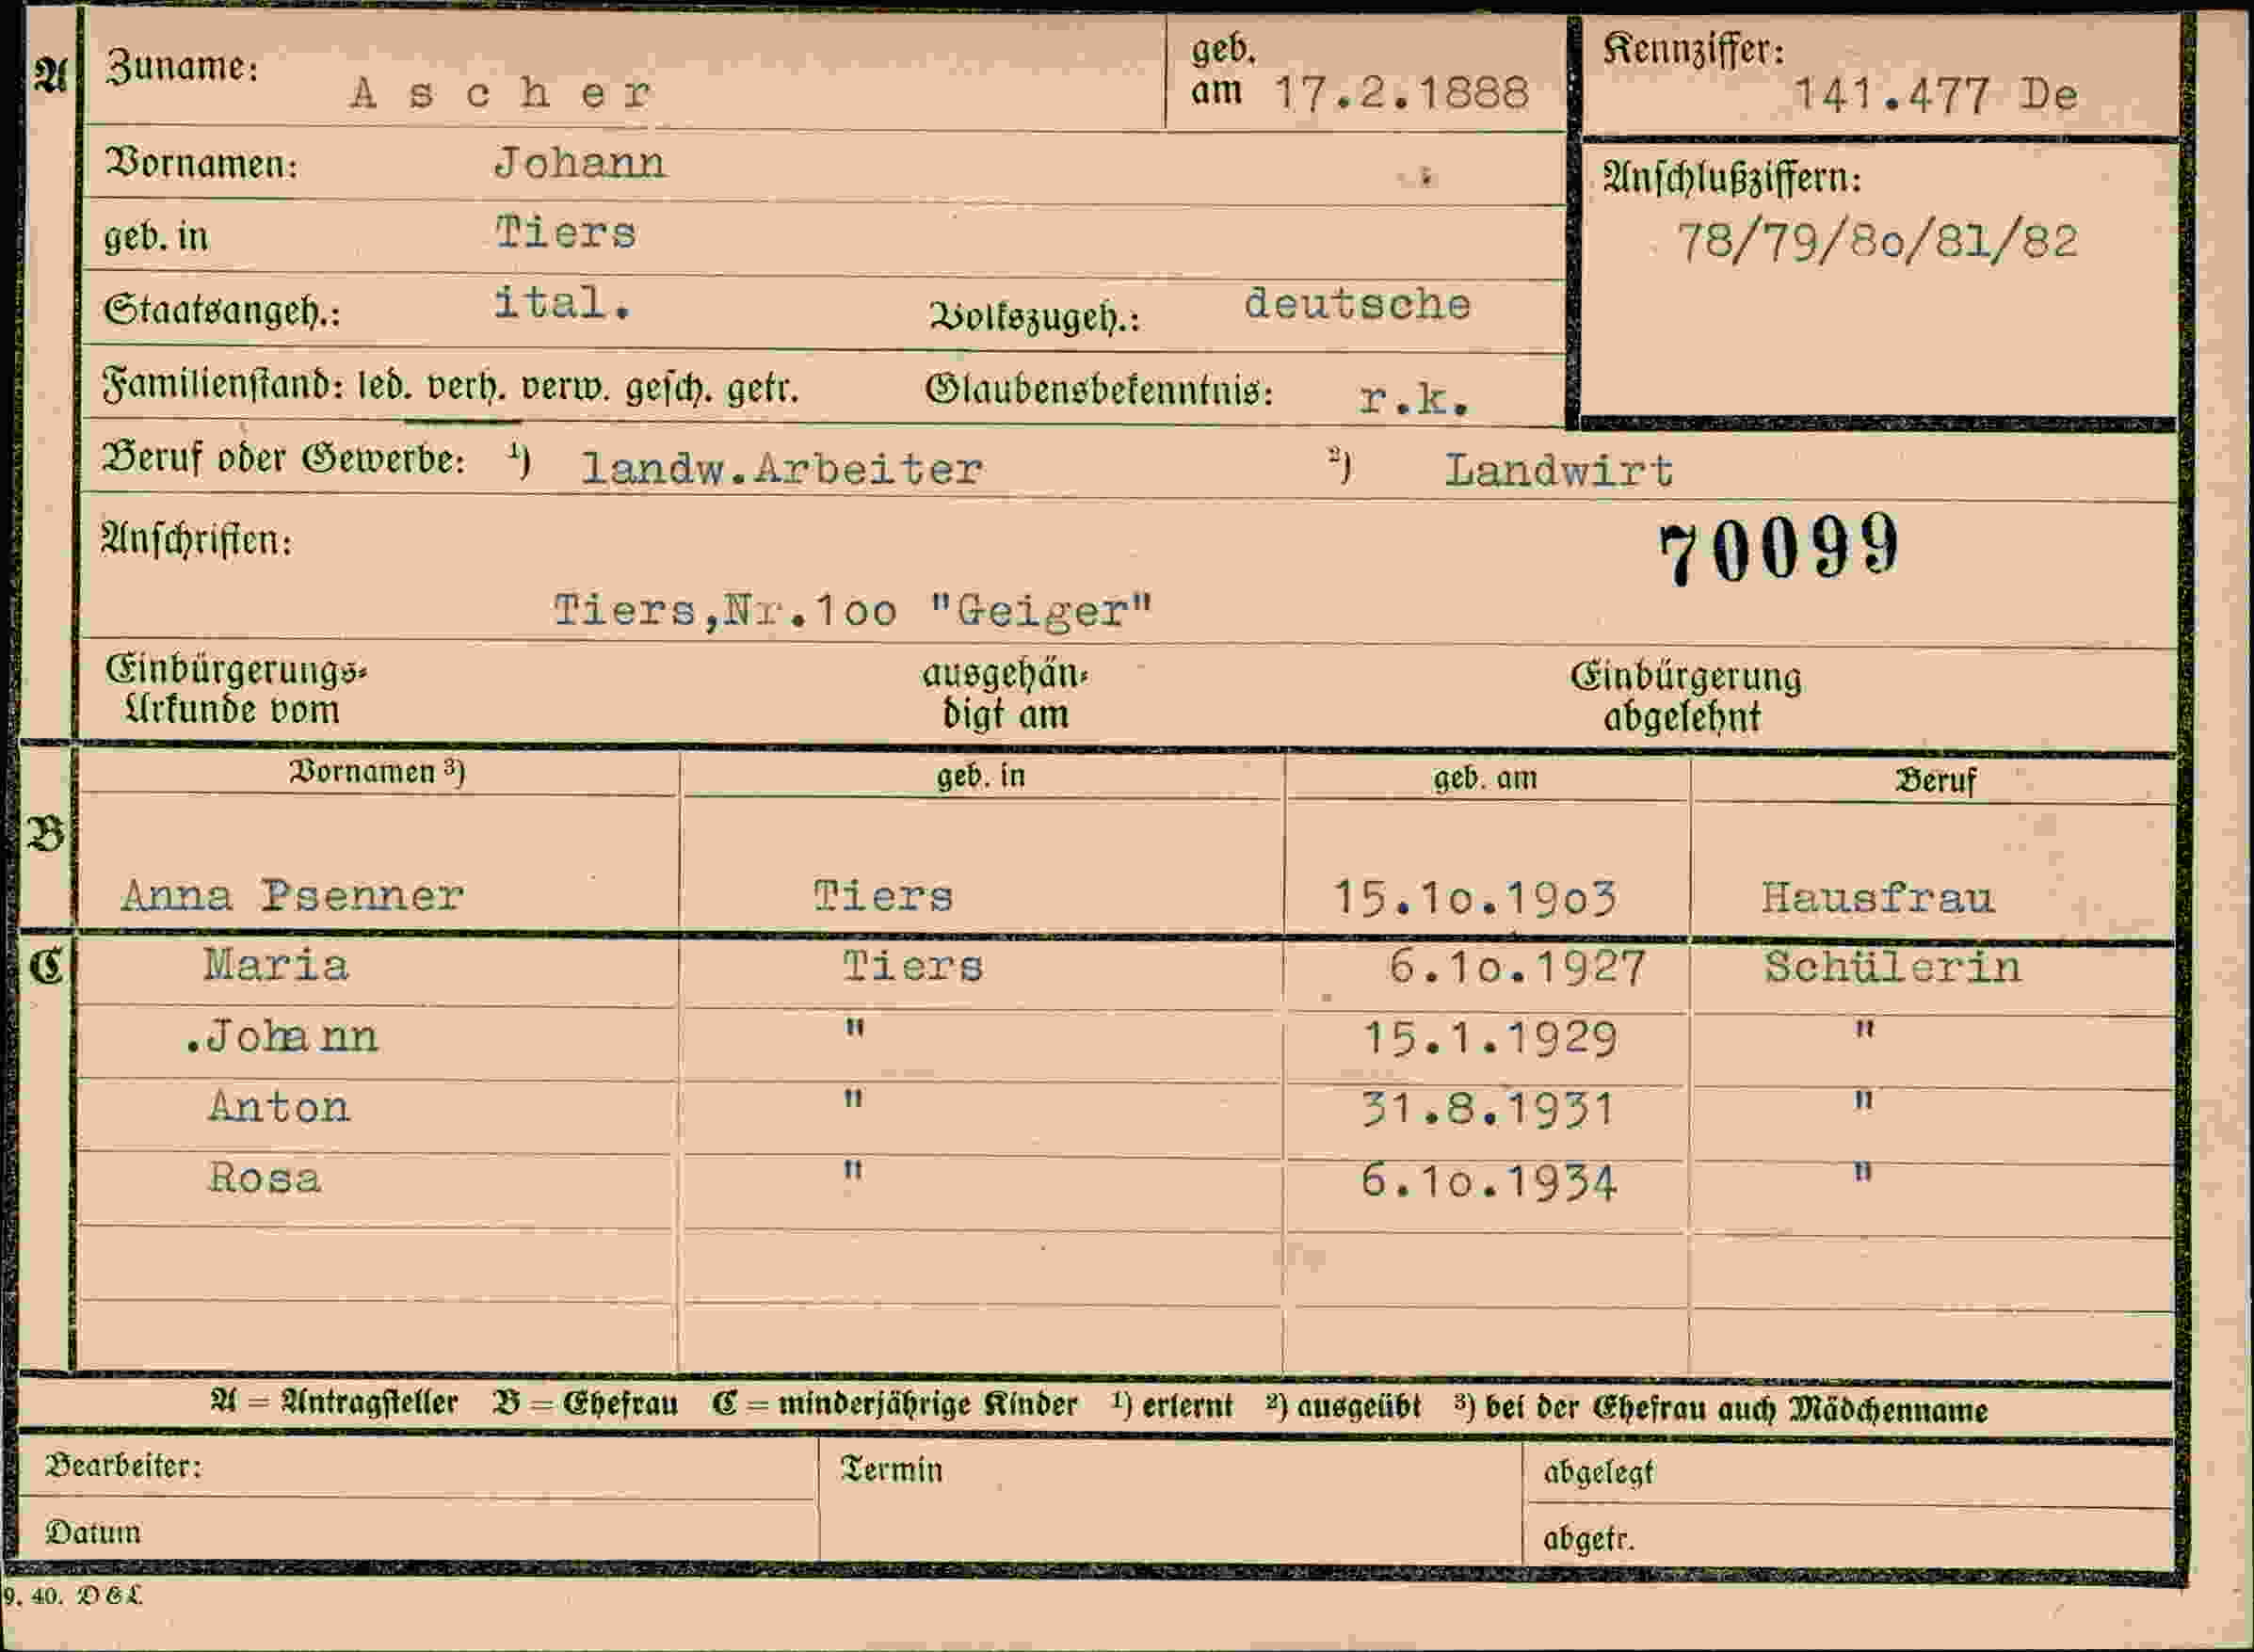 A Zuname: Ascher geb. am 17.2.1888 Kennziffer: 141.477 De
Vornamen: Johann
Anschlußziffern:
78/79/8o/81/82
geb. in Tiers
Staatsangeh.: ital. Volkszugeh.: deutsche
Familienstand: led. verh. verw. gesch. getr. Glaubensbekenntnis: r.k.
Beruf oder Gewerbe: ¹) landw.Arbeiter ²) Landwirt
Anschriften:
70099
Tiers,Nr.1oo "Geiger"
Einbürgerungs-Urkunde vom ausgehändigt am Einbürgerung abgelehnt
Vornamen ³) geb. in geb. am Beruf
B
Anna Psenner Tiers 15.1o.19o3 Hausfrau
C Maria Tiers 6.1o.1927 Schülerin
.Johann " 15.1.1929 "
Anton " 31.8.1931 "
Rosa " 6.1o.1934 "
A = Antragsteller B = Ehefrau C = minderjährige Kinder ¹) erlernt ²) ausgeübt ³) bei der Ehefrau auch Mädchenname
Bearbeiter: Termin abgelegt
Datum abgetr.
9. 40. DGL